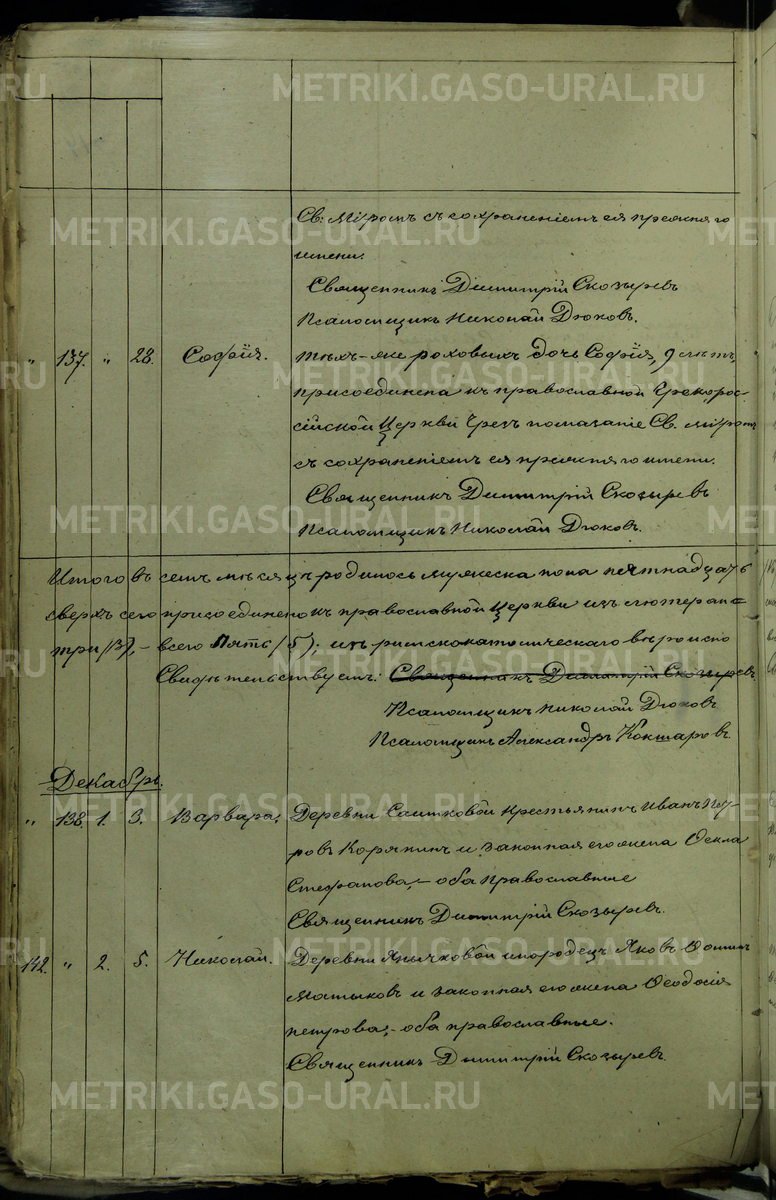 METRIKI.GASO-URAL.RU
Св. Мѵромъ съ сохраненіемъ ея прежняго
имени.
Священникъ Димитрій Скозыревъ
Псаломщикъ Николай Дюковъ.
„ 137. „ 28. Софія. тѣхъ-же
дочь Софія, 9 лѣтъ,
присоединена къ православной Грекорос-
сійской Церкви чрезъ помазаніе Св. мѵромъ
съ сохраненіемъ ея прежняго имени.
Священникъ Димитрій Скозыревъ
Псаломщикъ Николай Дюковъ.
Итого въ семъ мѣсяцѣ родилось мужеска пола пятнадцать
сверхъ сего присоединено къ православной Церкви изъ лютеранс
три (3), – всего пять (5); изъ римскокатолическаго вѣроиспо
Свидѣтельствуемъ: Священникъ Димитрій Скозыревъ.
Псаломщикъ Николай Дюковъ
Псаломщикъ Александръ Кокшаровъ.
Декабрь.
„ 138. 1. 3. Варвара. Деревни крестьянинъ Иванъ Пет-
ровъ Корякинъ и законная его жена Ѳекла
Стефанова, – оба православные
Священникъ Димитрій Скозыревъ.
142. „ 2. 5. Николай. Деревни Янычковой инородецъ Яковъ Ѳоминъ
Матыковъ и законная его жена Ѳеодосія
петрова, – оба православные.
Священникъ Димитрій Скозыревъ.